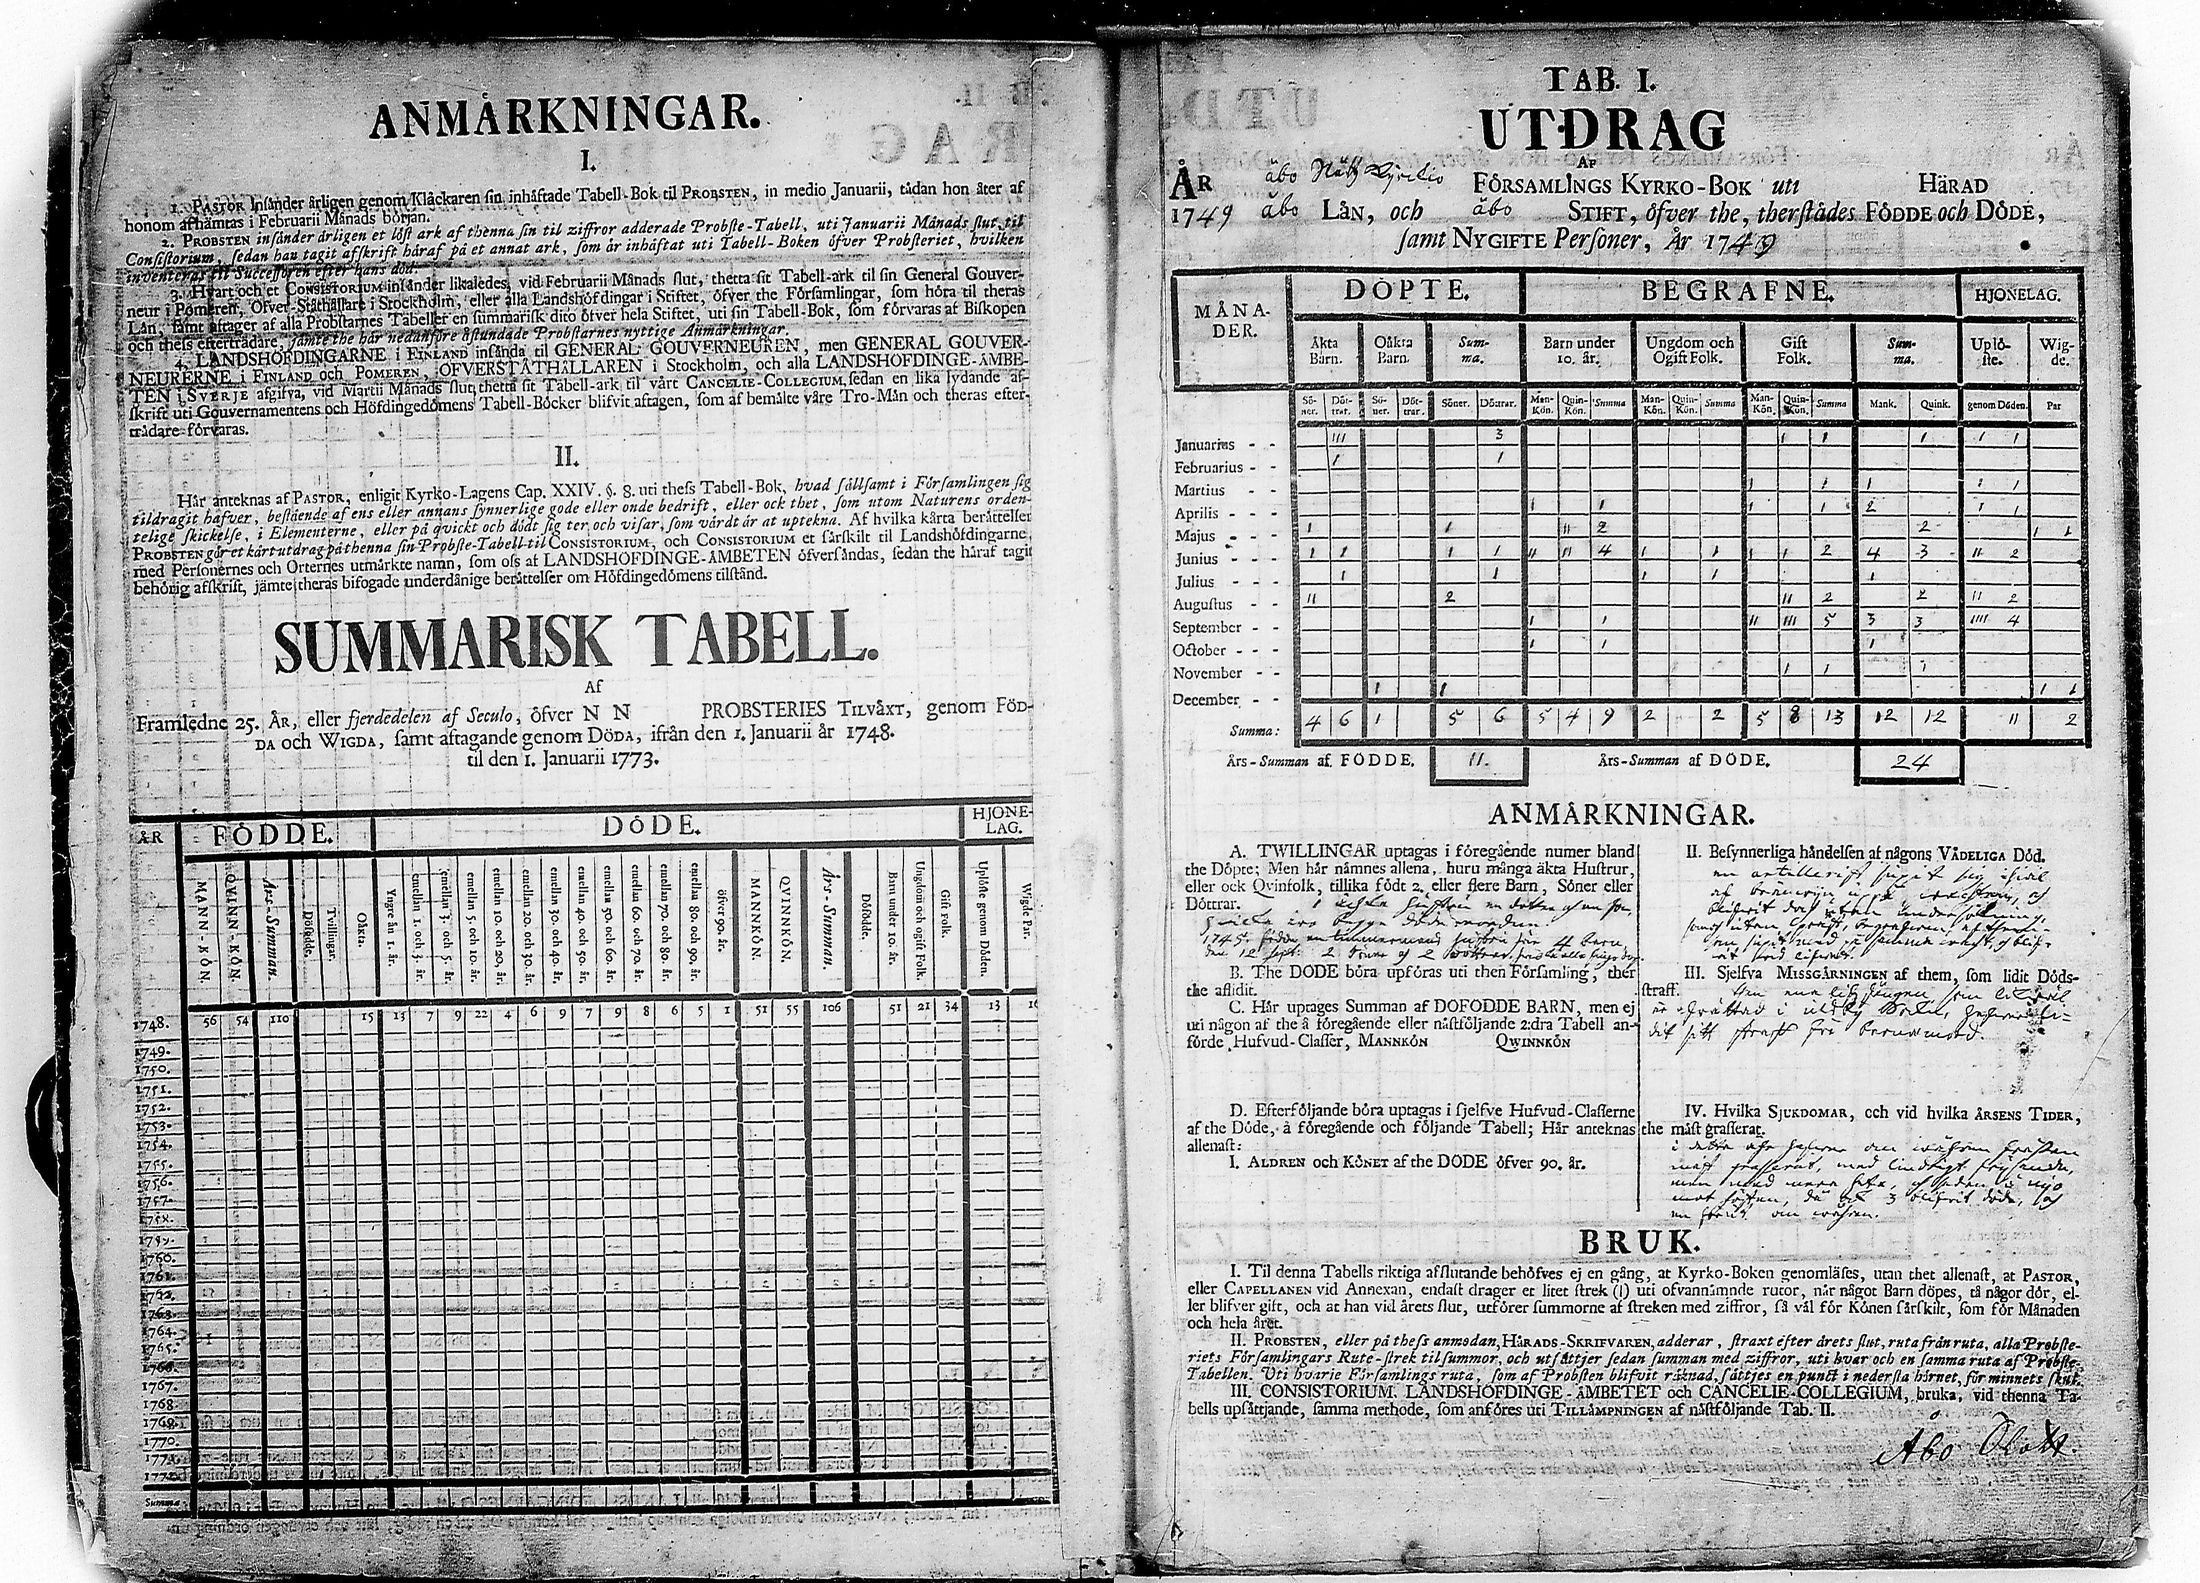 ANMÅRKNINGAR.
I.
1. PASTOR insänder årligen genom Klåckaren sin inhåftade Tabell-Bok til PROBSTEN, in medio Januarii, tådan hon åter af
honom afhåmtas i Februarii Månads början.
2. PROBSTEN insånder årligen et löst ark af thenna sin til ziffror adderade Probste-Tabell, uti Januarii Månads slut, til
Consistorium, sedan han tagit afskrift håraf på et annat ark, som år inhåftat uti Tabell-Boken öfver Probsteriet, hvilken
inventeras til Successoren efter hans död.
3. Hvart och et CONSISTORIUM insånder likaledes, vid Februarii Månads slut, thetta sit Tabell-ark til sin General Gouver-
neur i Pomeren, Öfver-Ståthållare i Stockholm, eller alla Landshöfdingar i Stiftet, öfver the Församlingar, som höra til theras
Lån, samt aftager af alla Probstarnes Tabeller en summarisk dito öfver hela Stiftet, uti sin Tabell-Bok, som förvaras af Biskopen
och thess eftertrådare, jåmte the hår nedanföre åstundade Probstarnes nyttige Anmårkningar.
4. LANDSHÖFDINGARNE i FINLAND insånda til GENERAL GOUVERNEUREN, men GENERAL GOUVER-
NEURERNE i FINLAND och POMEREN, ÖFVERSTÅTHÅLLAREN i Stockholm, och alla LANDSHÖFDINGE-ÅMBE-
TEN i SVERJE afgifva, vid Martii Månads slut, thetta sit Tabell-ark til vårt CANCELIE-COLLEGIUM, sedan en lika lydande af-
skrift uti Gouvernamentens och Höfdingedömens Tabell-Böcker blifvit aftagen, som af bemålte våre Tro-Mån och theras efter-
trådare förvaras.
II.
Hår anteknas af PASTOR, enligit Kyrko-Lagens Cap. XXIV. §. 8. uti thess Tabell-Bok, hvad sållsamt i Församlingen sig
tildragit håfver, bestående af ens eller annans synnerlige gode eller onde bedrift, eller ock thet, som utom Naturens orden-
telige skickelse, i Elementerne, eller på qvickt och dödt sig ter och visar, som vårdt år at uptekna. Af hvilka kårta beråttelser
PROBSTEN gör et kårt utdrag på thenna sin Probste-Tabell til CONSISTORIUM, och CONSISTORIUM et sårskilt til Landshöfdingarne,
med Personernes och Orternes utmårkte namn, som oss af LANDSHÖFDINGE-ÅMBETEN öfversåndas, sedan the håraf tagit
behörig afskrift, jåmte theras bifogade underdånige beråttelser om Höfdingedömens tilstånd.
SUMMARISK TABELL.
Af
Framledne 25. ÅR, eller fjerdedelen af Seculo, öfver N N PROBSTERIES TILVÅXT, genom FÖD-
DA och WIGDA, samt aftagande genom DÖDA, ifrån den 1. Januarii år 1748.
til den 1. Januarii 1773.
ÅR FÖDDE. DÖDE. HJONE-
LAG.
MANN-KÖN. QVINN-KÖN. Års-Summan. Dödfödde. Tvillingar. Oåkta. Yngre ån 1. år. emellan 1. och 3. år. emellan 3. och 5. år. emellan 5. och 10. år. emellan 10. och 20. år. emellan 20. och 30. år. emellan 30. och 40. år. emellan 40. och 50. år. emellan 50. och 60. år. emellan 60. och 70. år. emellan 70. och 80. år. emellan 80. och 90. år. öfver 90. år. MANNKÖN. QVINNKÖN. Års-Summan. Dödfödde. Barn under 10. år. Ungdom och ogift Folk. Gift Folk. Uplöste genom Döden. Wigde Par.
1748. 56 54 110 15 13 7 9 22 4 6 9 7 9 8 6 5 1 51 55 106 51 21 34 13 16
1749.
1750.
1751.
1752.
1753.
1754.
1755.
1756.
1757.
1758.
1759.
1760.
1761.
1762.
1763.
1764.
1765.
1766.
1767.
1768.
1769.
1770.
1771.
1772.
Summa:
TAB. I.
UTDRAG
AF
ÅR åbo FÖRSAMLINGS KYRKO-BOK uti HÄRAD
1749 åbo LÅN, och åbo STIFT, öfver the, therstådes FÖDDE och DÖDE,
samt NYGIFTE Personer, år 1749
MÅNA-
DER. DÖPTE. BEGRAFNE. HJONELAG.
Åkta Barn. Oåkta Barn. Sum-ma. Barn under 10. år. Ungdom och Ogift Folk. Gift Folk. Sum-ma. Uplö-ste. Wig-de.
Sö-ner. Döt-trar. Sö-ner. Döt-trar. Söner. Döttrar. Man-Kön. Quin-Kön. Summa Man-Kön. Quin-Kön. Summa Man-Kön. Quin-Kön. Summa Mank. Quink. genom Döden. Par
Januarius - - III 3 1 1 1 1 1
Februarius - - 1 1
Martius - - 1 1 1 1 1
Aprilis - - 1 1 1 1 2 1 1
Majus - - 1 1 II 2 2 1 1
Junius - - 1 1 1 1 II II 4 1 1 1 1 2 4 3 II 2
Julius - - 1 1 1 1 1
Augustus - - II 2 II 2 2 II 2
September - - 1 1 II III 5 3 3 IIII 4
October - - 1 1 1
November - - 1 1 1
December - - 1 1 1 1
Summa: 4 6 1 5 6 5 4 9 2 2 5 8 13 12 12 11 2
Års-Summan af FÖDDE. 11. Års-Summan af DÖDE. 24
ANMÅRKNINGAR.
A. TWILLINGAR uptagas i föregående numer bland
the Döpte; Men hår nåmnes allena, huru många åkta Hustrur,
eller ock Qvinfolk, tillika födt 2. eller flere Barn, Söner eller
Döttrar.
B. The DÖDE böra upföras uti then Församling, ther
the aflidit.
C. Hår uptages Summan af DÖFÖDDE BARN, men ej
uti någon af the å föregående eller nåstföljande 2:dra Tabell an-
förde Hufvud-Classer, MANNKÖN QWINNKÖN
D. Efterföljande böra uptagas i sjelfve Hufvud-Classerne
af the Döde, å föregående och följande Tabell; Hår anteknas
allenast:
I. ALDREN och KÖNET af the DÖDE öfver 90. år.
II. Besynnerliga håndelsen af någons VÅDELIGA Död.
III. Sjelfva MISSGÅRNINGEN af them, som lidit Döds-
straff.
IV. Hvilka SJUKDOMAR, och vid hvilka ÅRSENS TIDER,
the måst grasserat.
BRUK.
I. Til denna Tabells riktiga afslutande behöfves ej en gång, at Kyrko-Boken genomläses, utan thet allenast, at PASTOR,
eller CAPELLANEN vid Annexan, endast drager et litet strek (|) uti ofvannåmnde rutor, når något Barn döpes, tå någor dör, el-
ler blifver gift, och at han vid årets slut, utförer summorne af streken med ziffror, så vål för Könen sårskilt, som för Månaden
och hela året.
II. PROBSTEN, eller på thess anmodan, HÅRADS-SKRIFVAREN, adderar, straxt efter årets slut, ruta från ruta, alla Probste-
riets Församlingars Rute-strek til summor, och utsåttjer sedan summan med ziffror, uti hvar och en samma ruta af Probste-
Tabellen. Uti hvarje Församlings ruta, som af Probsten blifvit råknad, såttjes en punct i nedersta hörnet, för minnets skul.
III. CONSISTORIUM, LANDSHÖFDINGE-ÅMBETET och CANCELIE-COLLEGIUM, bruka, vid thenna Ta-
bells upsåttjande, samma methode, som anföres uti TILLÅMPNINGEN af nåstföljande Tab. II.
Åbo Slott